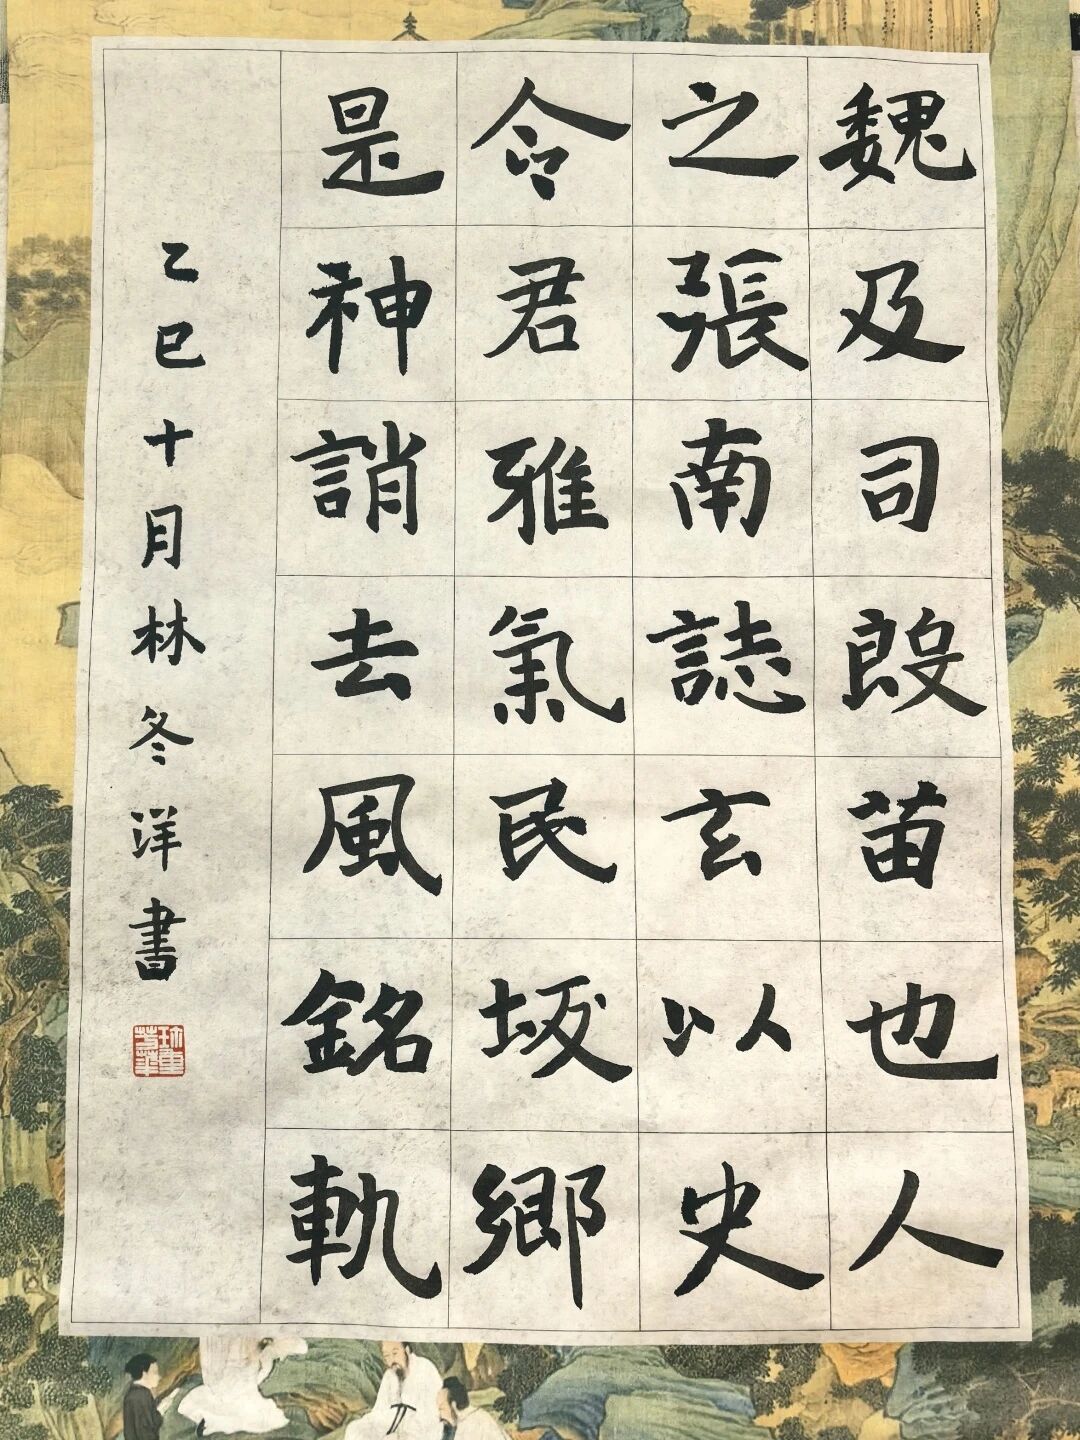 魏及司苗也人
之張南誌玄以史
令君雅氣民坂鄉
是神誚去風銘軌
乙巳十月林冬洋書
珍重芳華